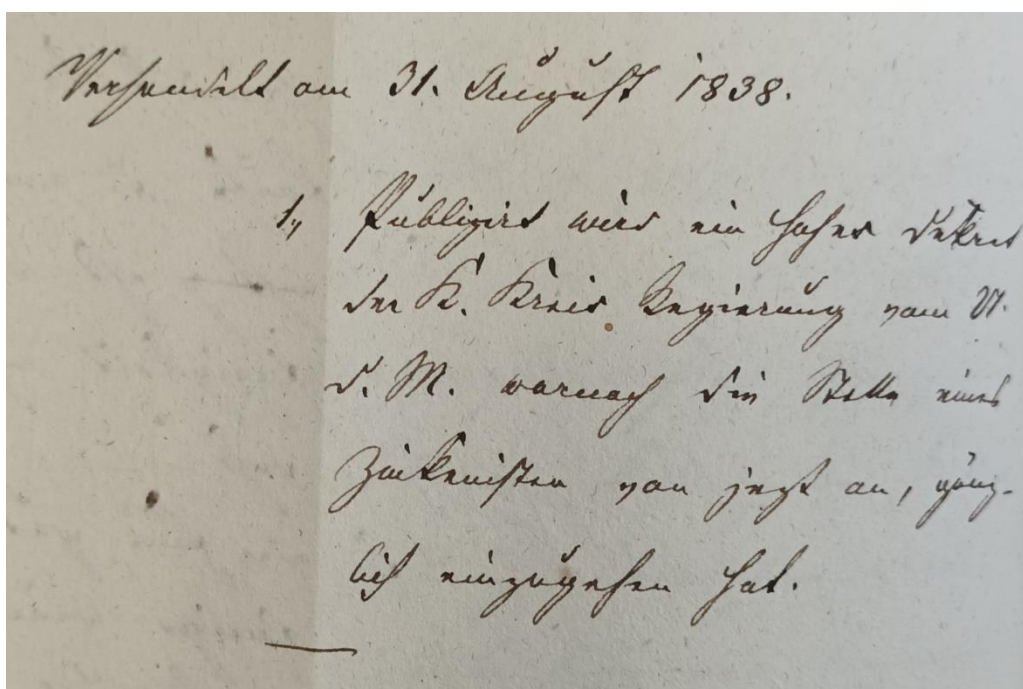 Verhandelt am 31. August 1838.
1., Publizirt wird ein hohes Dekret
der K. Kreis Regierung vom
d. M. wornach die Stelle eines
Zinkenisten von jezt an, gänz-
lich einzugehen hat.